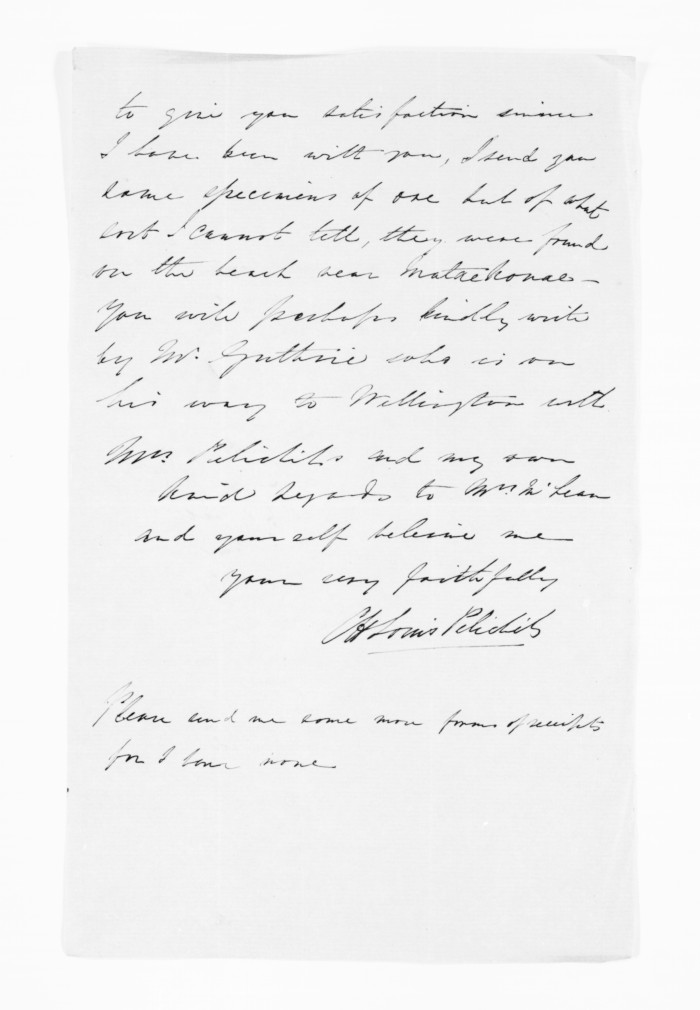 to give you satisfaction since
I have been with you, I send you
some specimens of ore but of what
sort I cannot tell, they were found
on the beach near Mataehonae –
You will perhaps kindly write
by Mr. Guthrie who is on
his way to Wellington with
Mrs Pelichets and my own
kind regards to Mrs McLean
and yourself beleive me
your very faithfully
CH Louis Pelichet
Please send me some more forms of receipts
for I have none